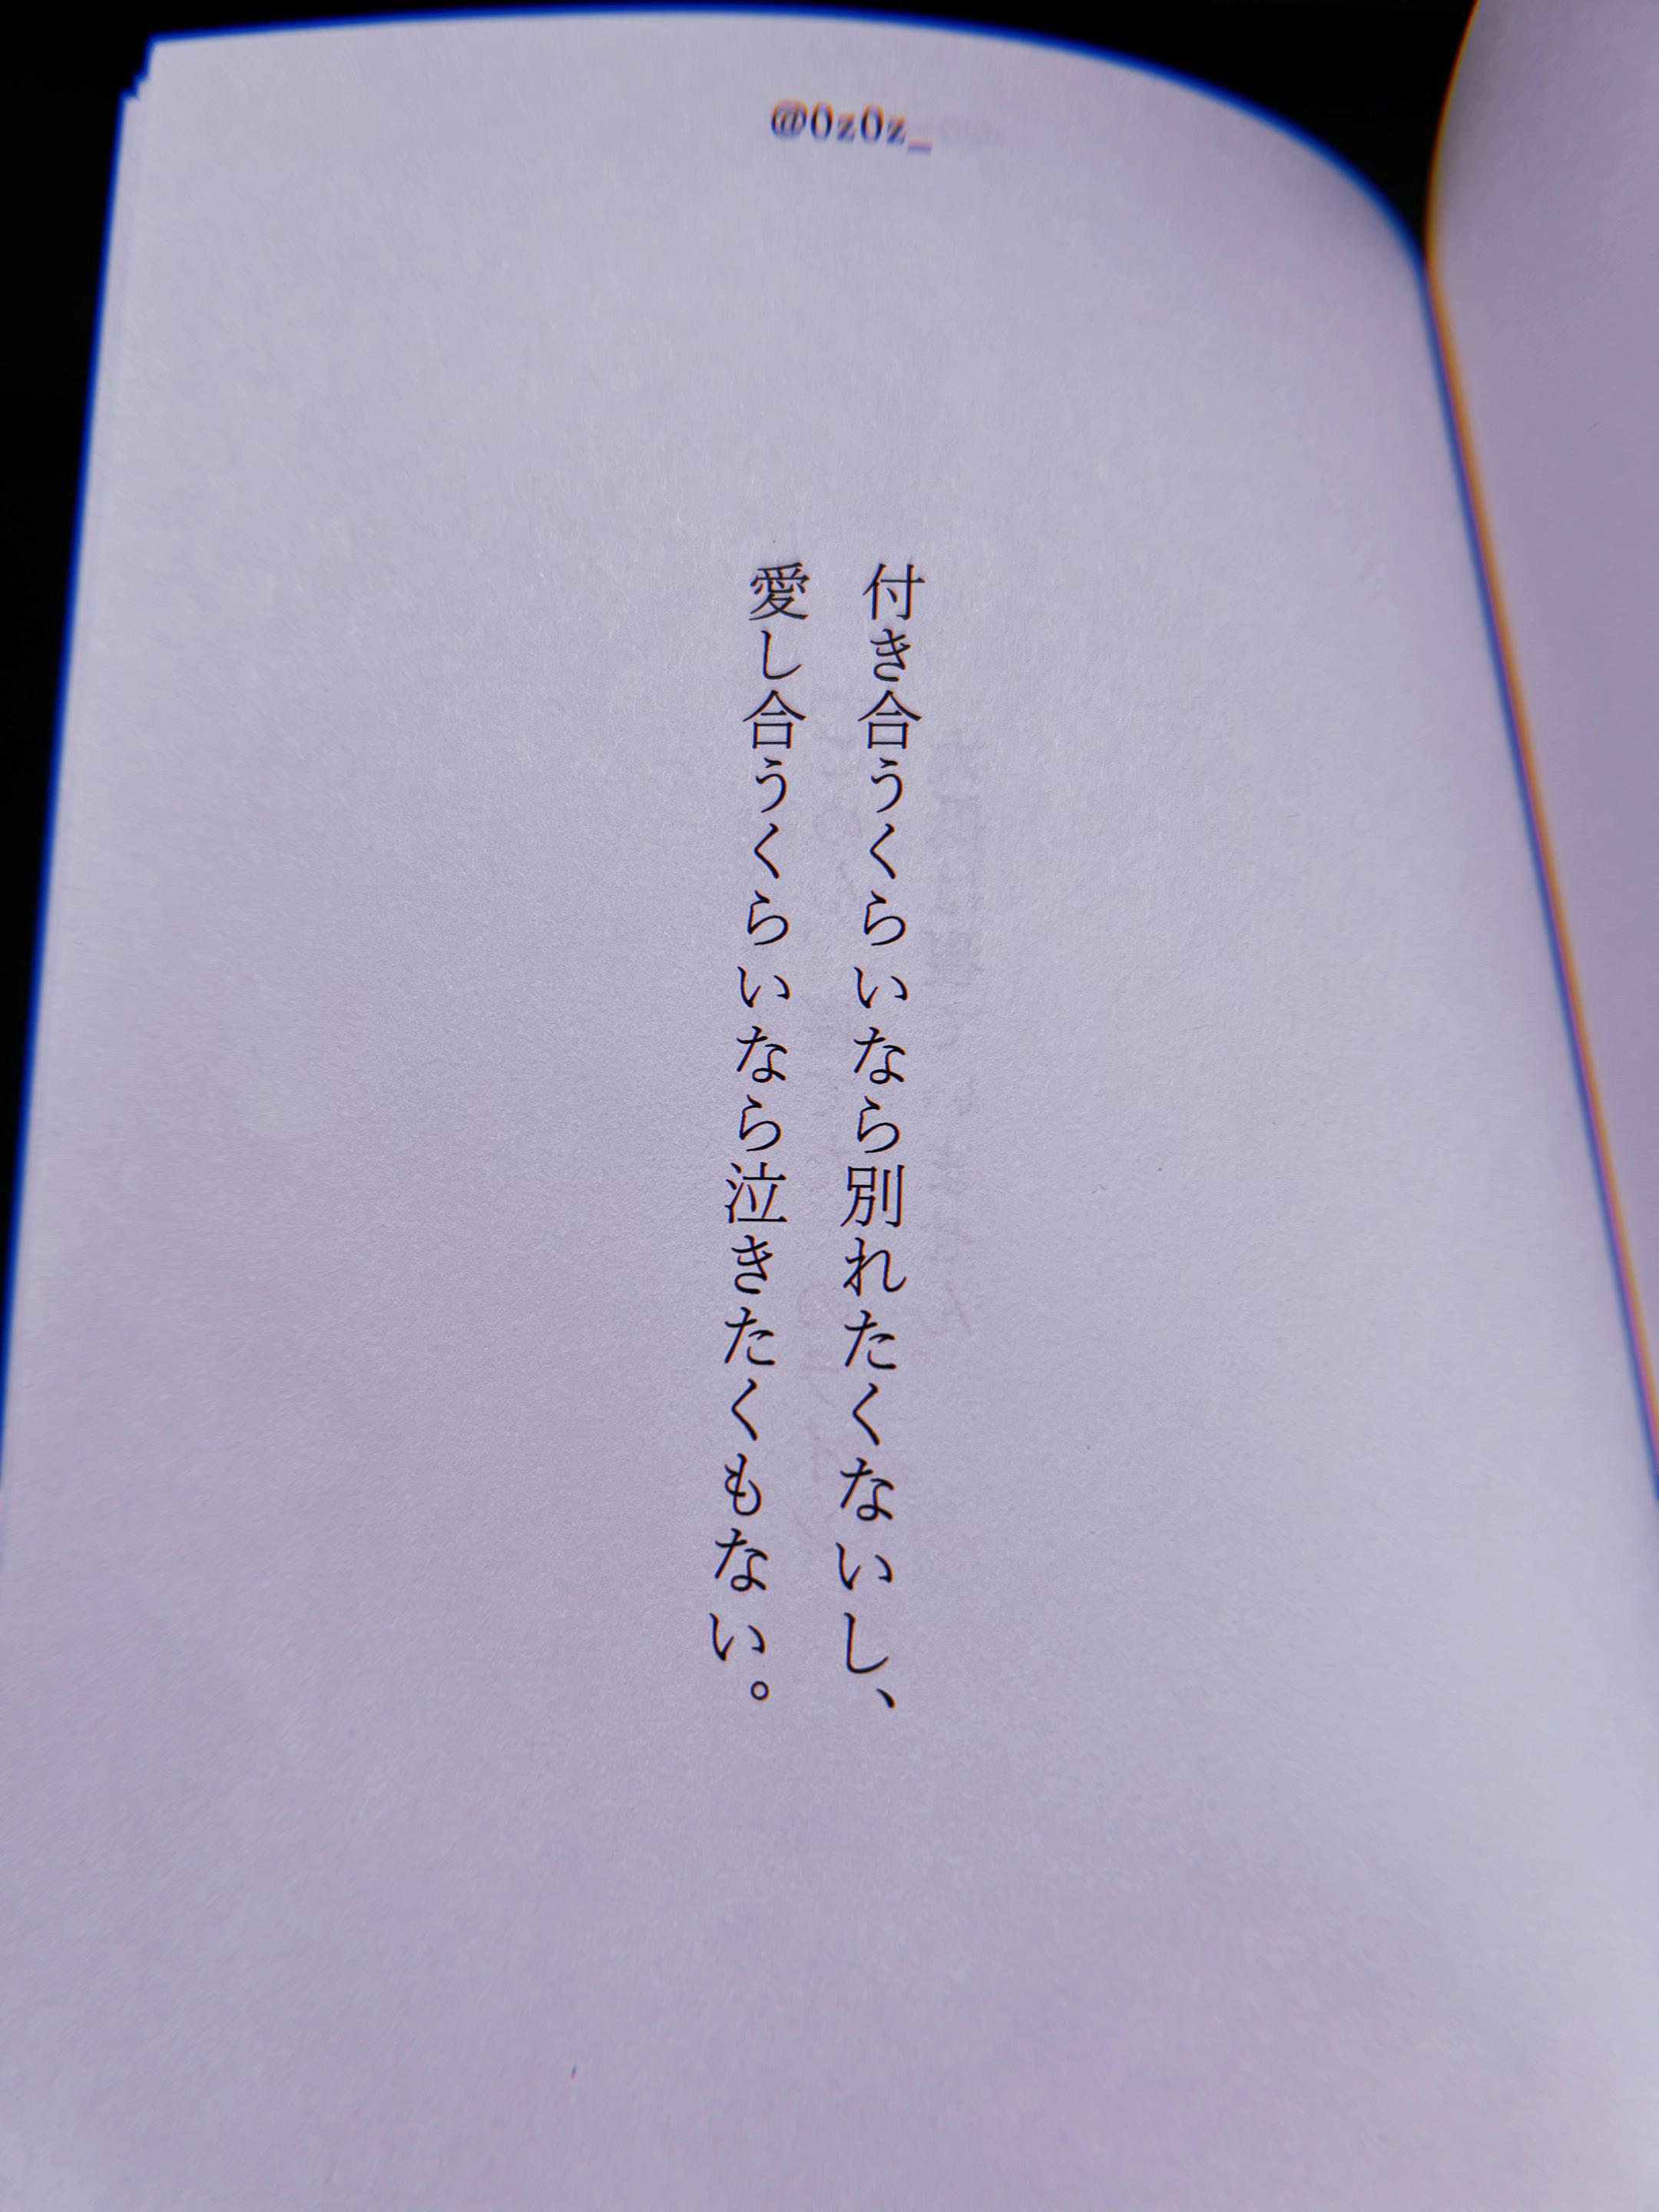 @0z0z_
付き合うくらいなら別れたくないし、
愛し合うくらいなら泣きたくもない。